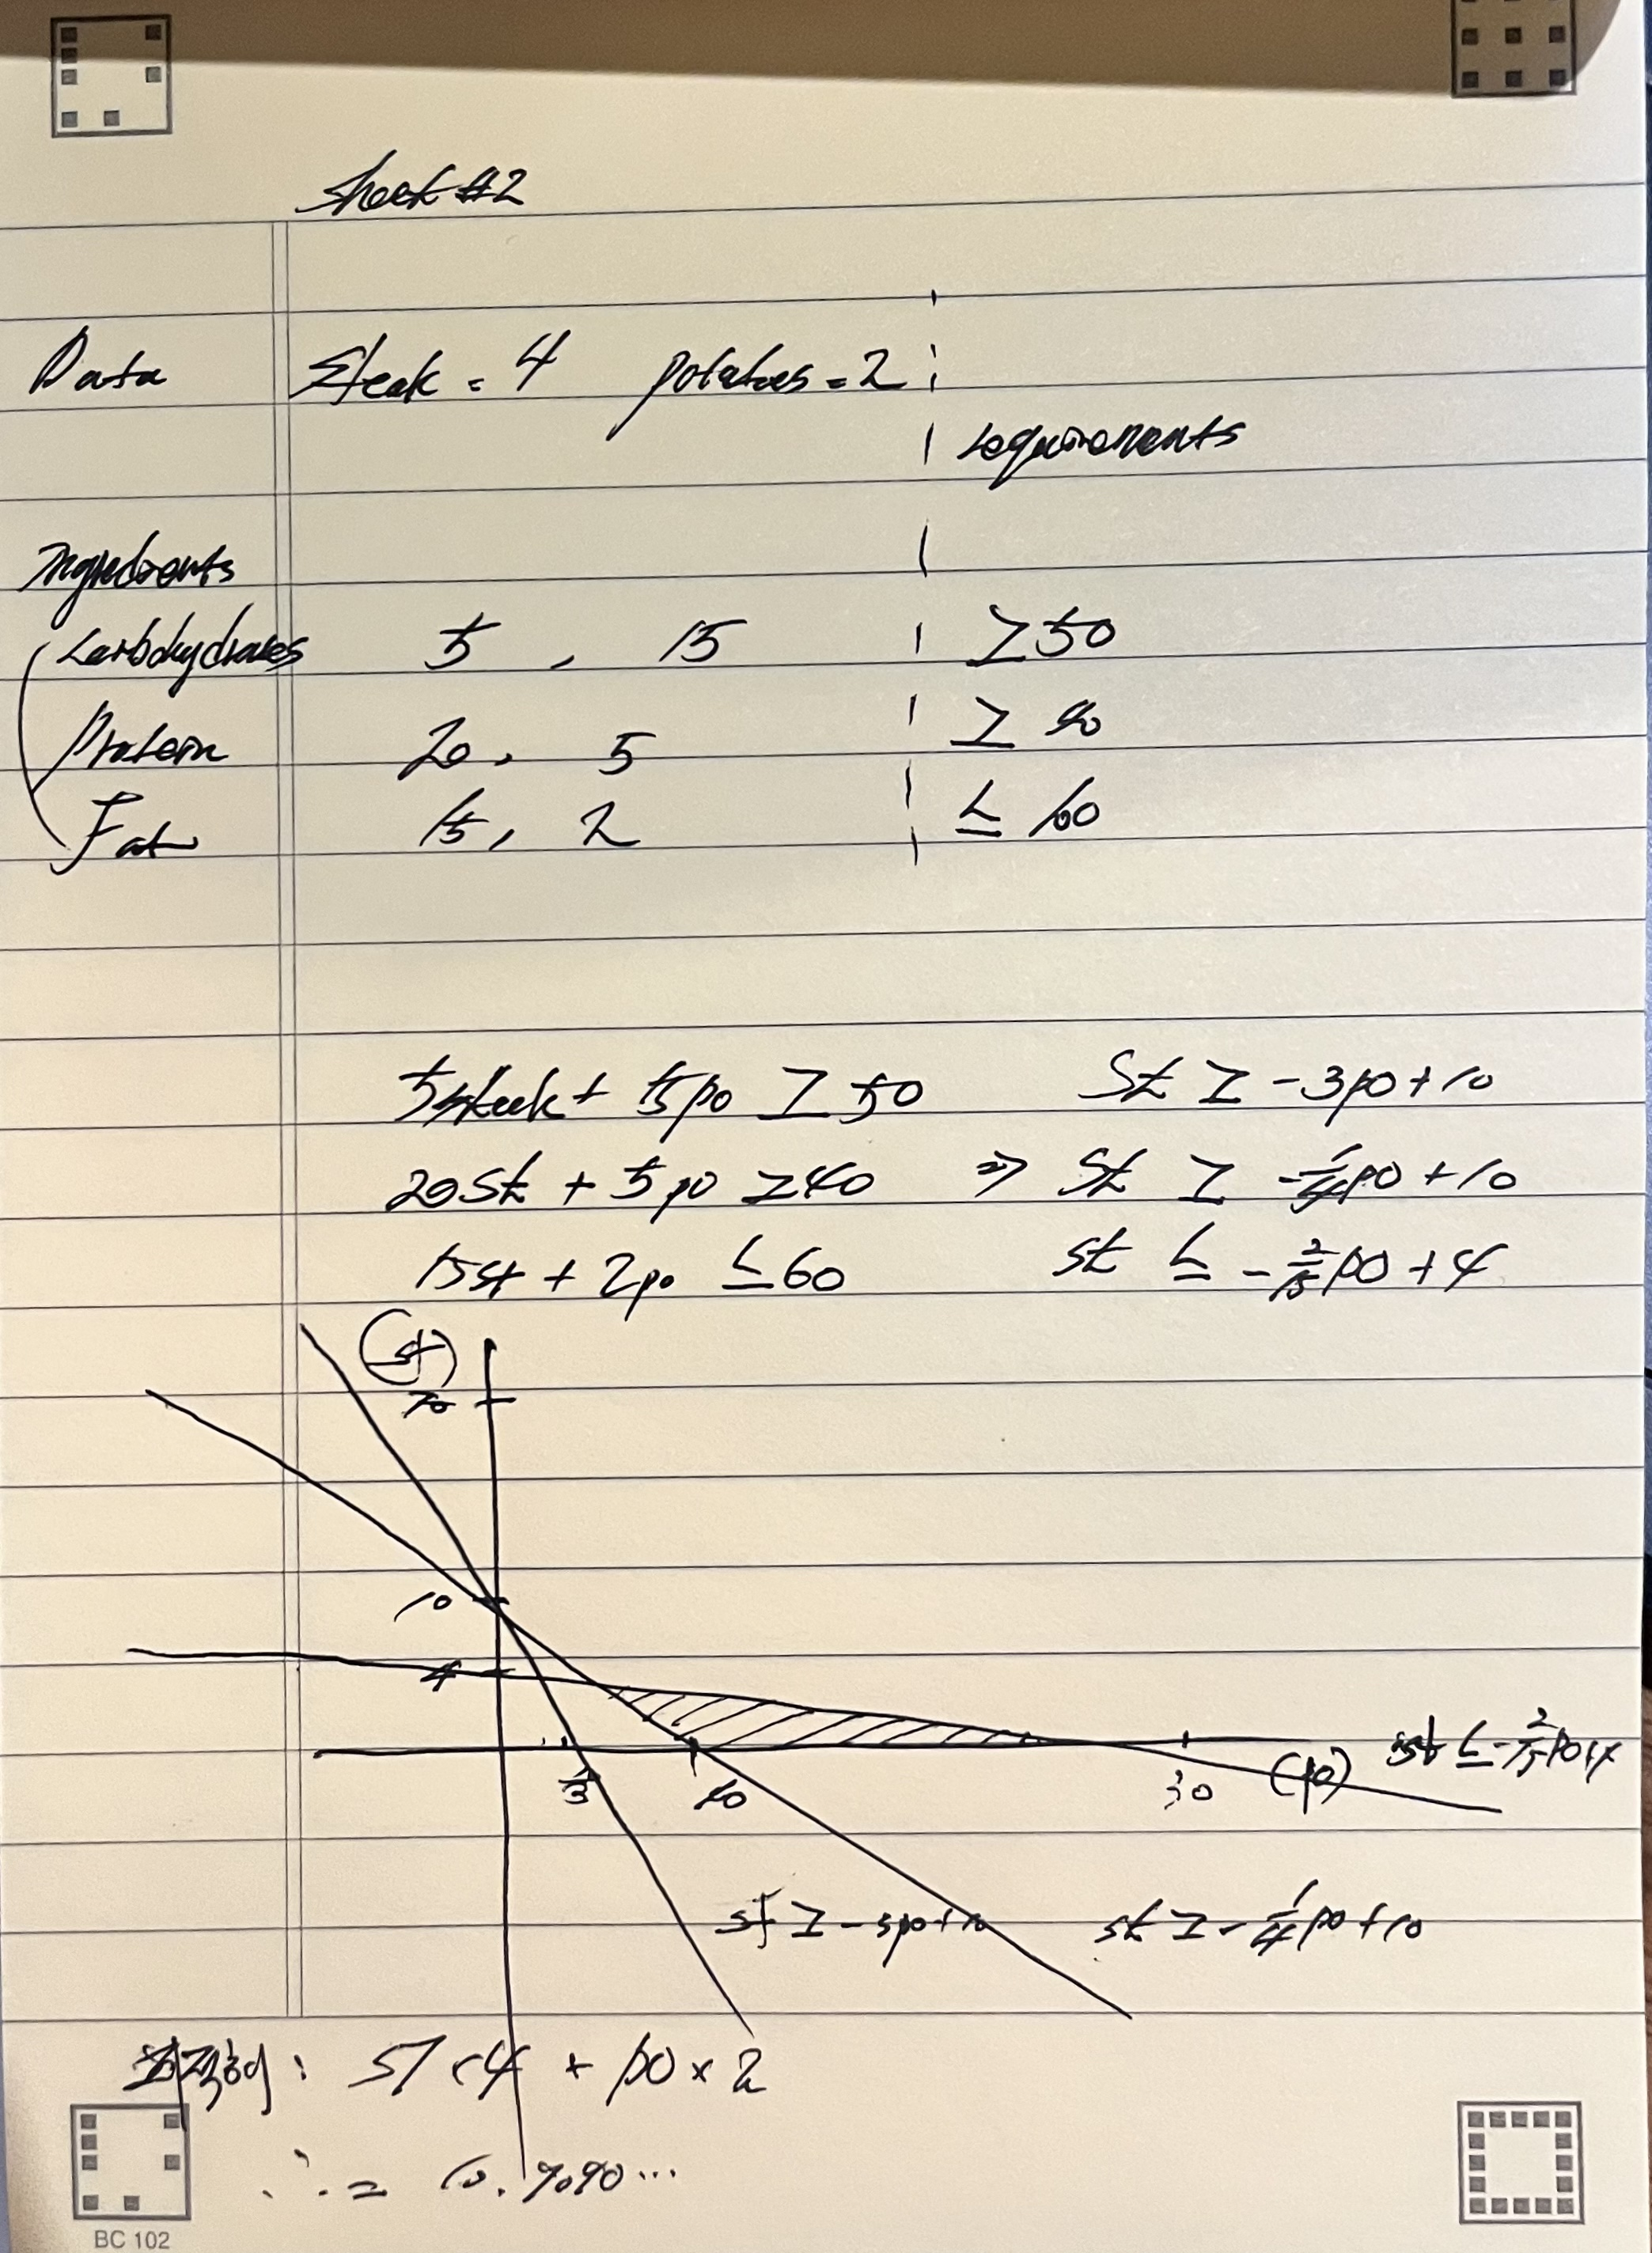 sheet #2
Data Steak = 4 potatoes = 2
requirements
Ingredients
Carbohydrates 5, 15 ≥ 50
Protein 20, 5 ≥ 40
Fat 15, 2 ≤ 60
5steak + 15po ≥ 50 St ≥ -3po + 10
20St + 5po ≥ 40 ⇒ St ≥ -1/4po + 10
15st + 2po ≤ 60 st ≤ -2/15po + 4
(st)
10
4
30 (po) st ≤ -2/15po+4
st ≥ -3po+10 st ≥ -1/4po+10
: ST × 4 + po × 2
∴ = 10.9090...
BC 102